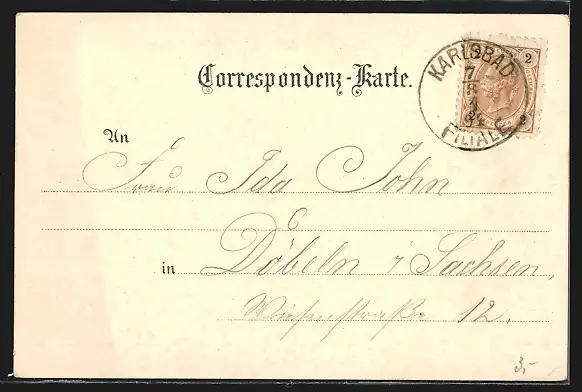 Correspondenz-Karte.
KARLSBAD
7
8
FILIALE
2
2
An
Frau Ida John
in Döbeln i Sachsen,
Wiesenstraße 12.
3,-